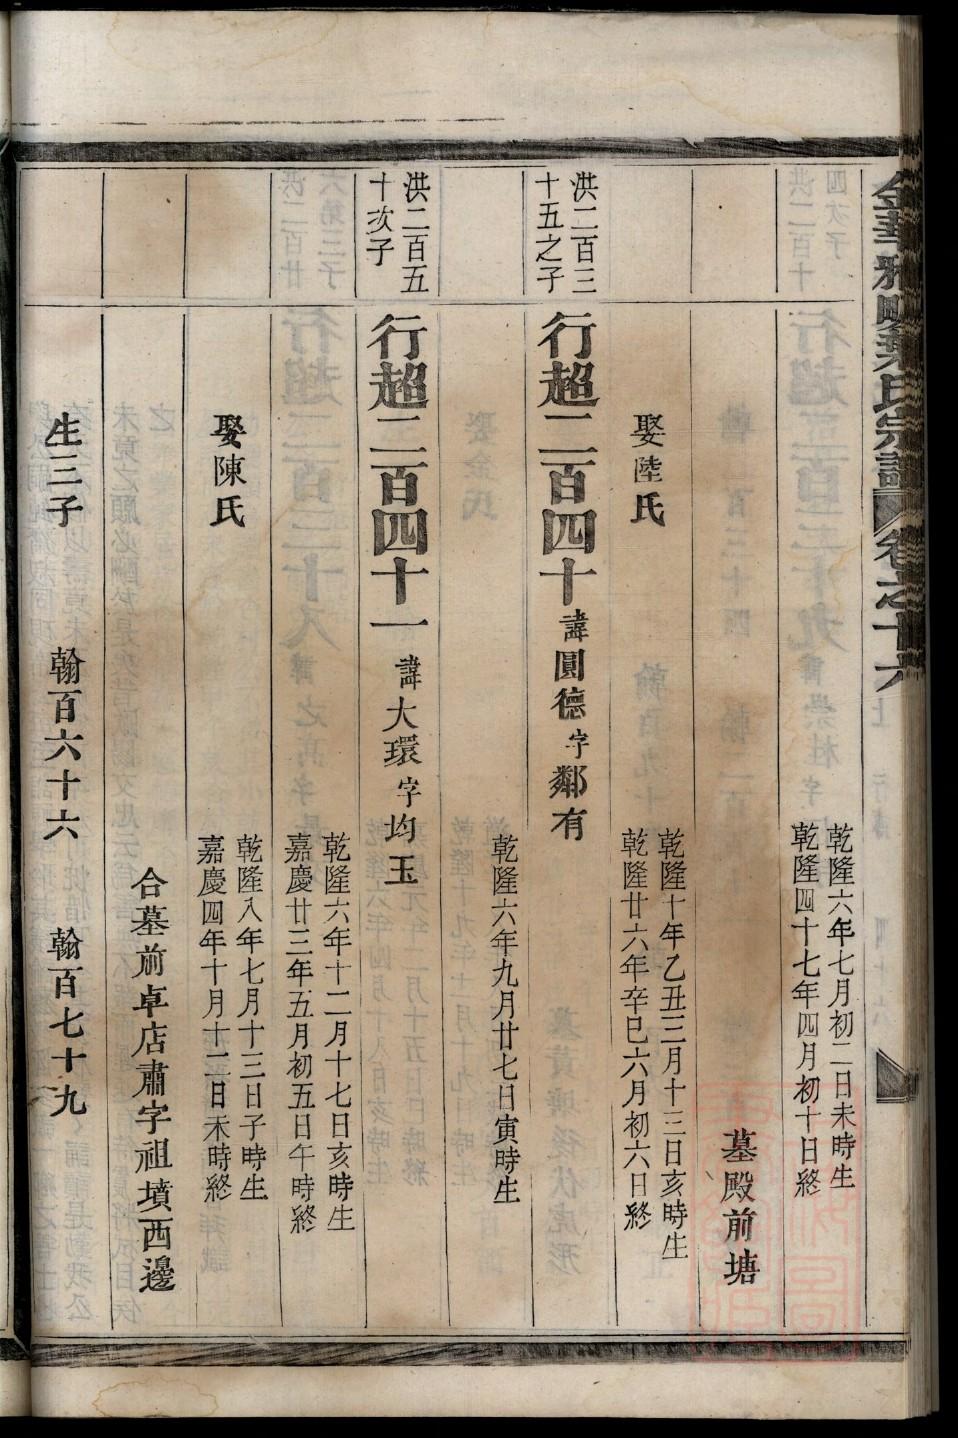 乾隆六年七月初二日未時生
乾隆四十七年四月初十日終
墓殿前塘
娶陸氏
乾隆十年乙丑三月十三日亥時生
乾隆廿六年辛巳六月初六日終
洪二百三
十五之子
行超二百四十
諱圓德字鄰有
乾隆六年九月廿七日寅時生
洪二百五
十次子
行超二百四十一
諱大環字均玉
乾隆六年十二月十七日亥時生
嘉慶廿三年五月初五日午時終
娶陳氏
乾隆八年七月十三日子時生
嘉慶四年十月十二日未時終
合墓前卓店肅字祖墳西邊
生三子 翰百六十六 翰百七十九